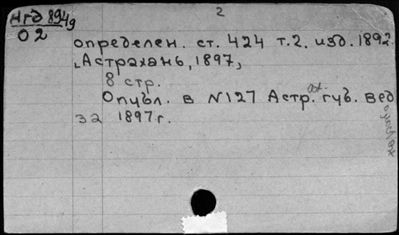 НГД 894g
02
2
определен. ст. 424 т.2, изд. 1892.
Астрахань, 1897,
8 стр.
Опубл. в N127 Астр. губ. вед
за 1897 г.